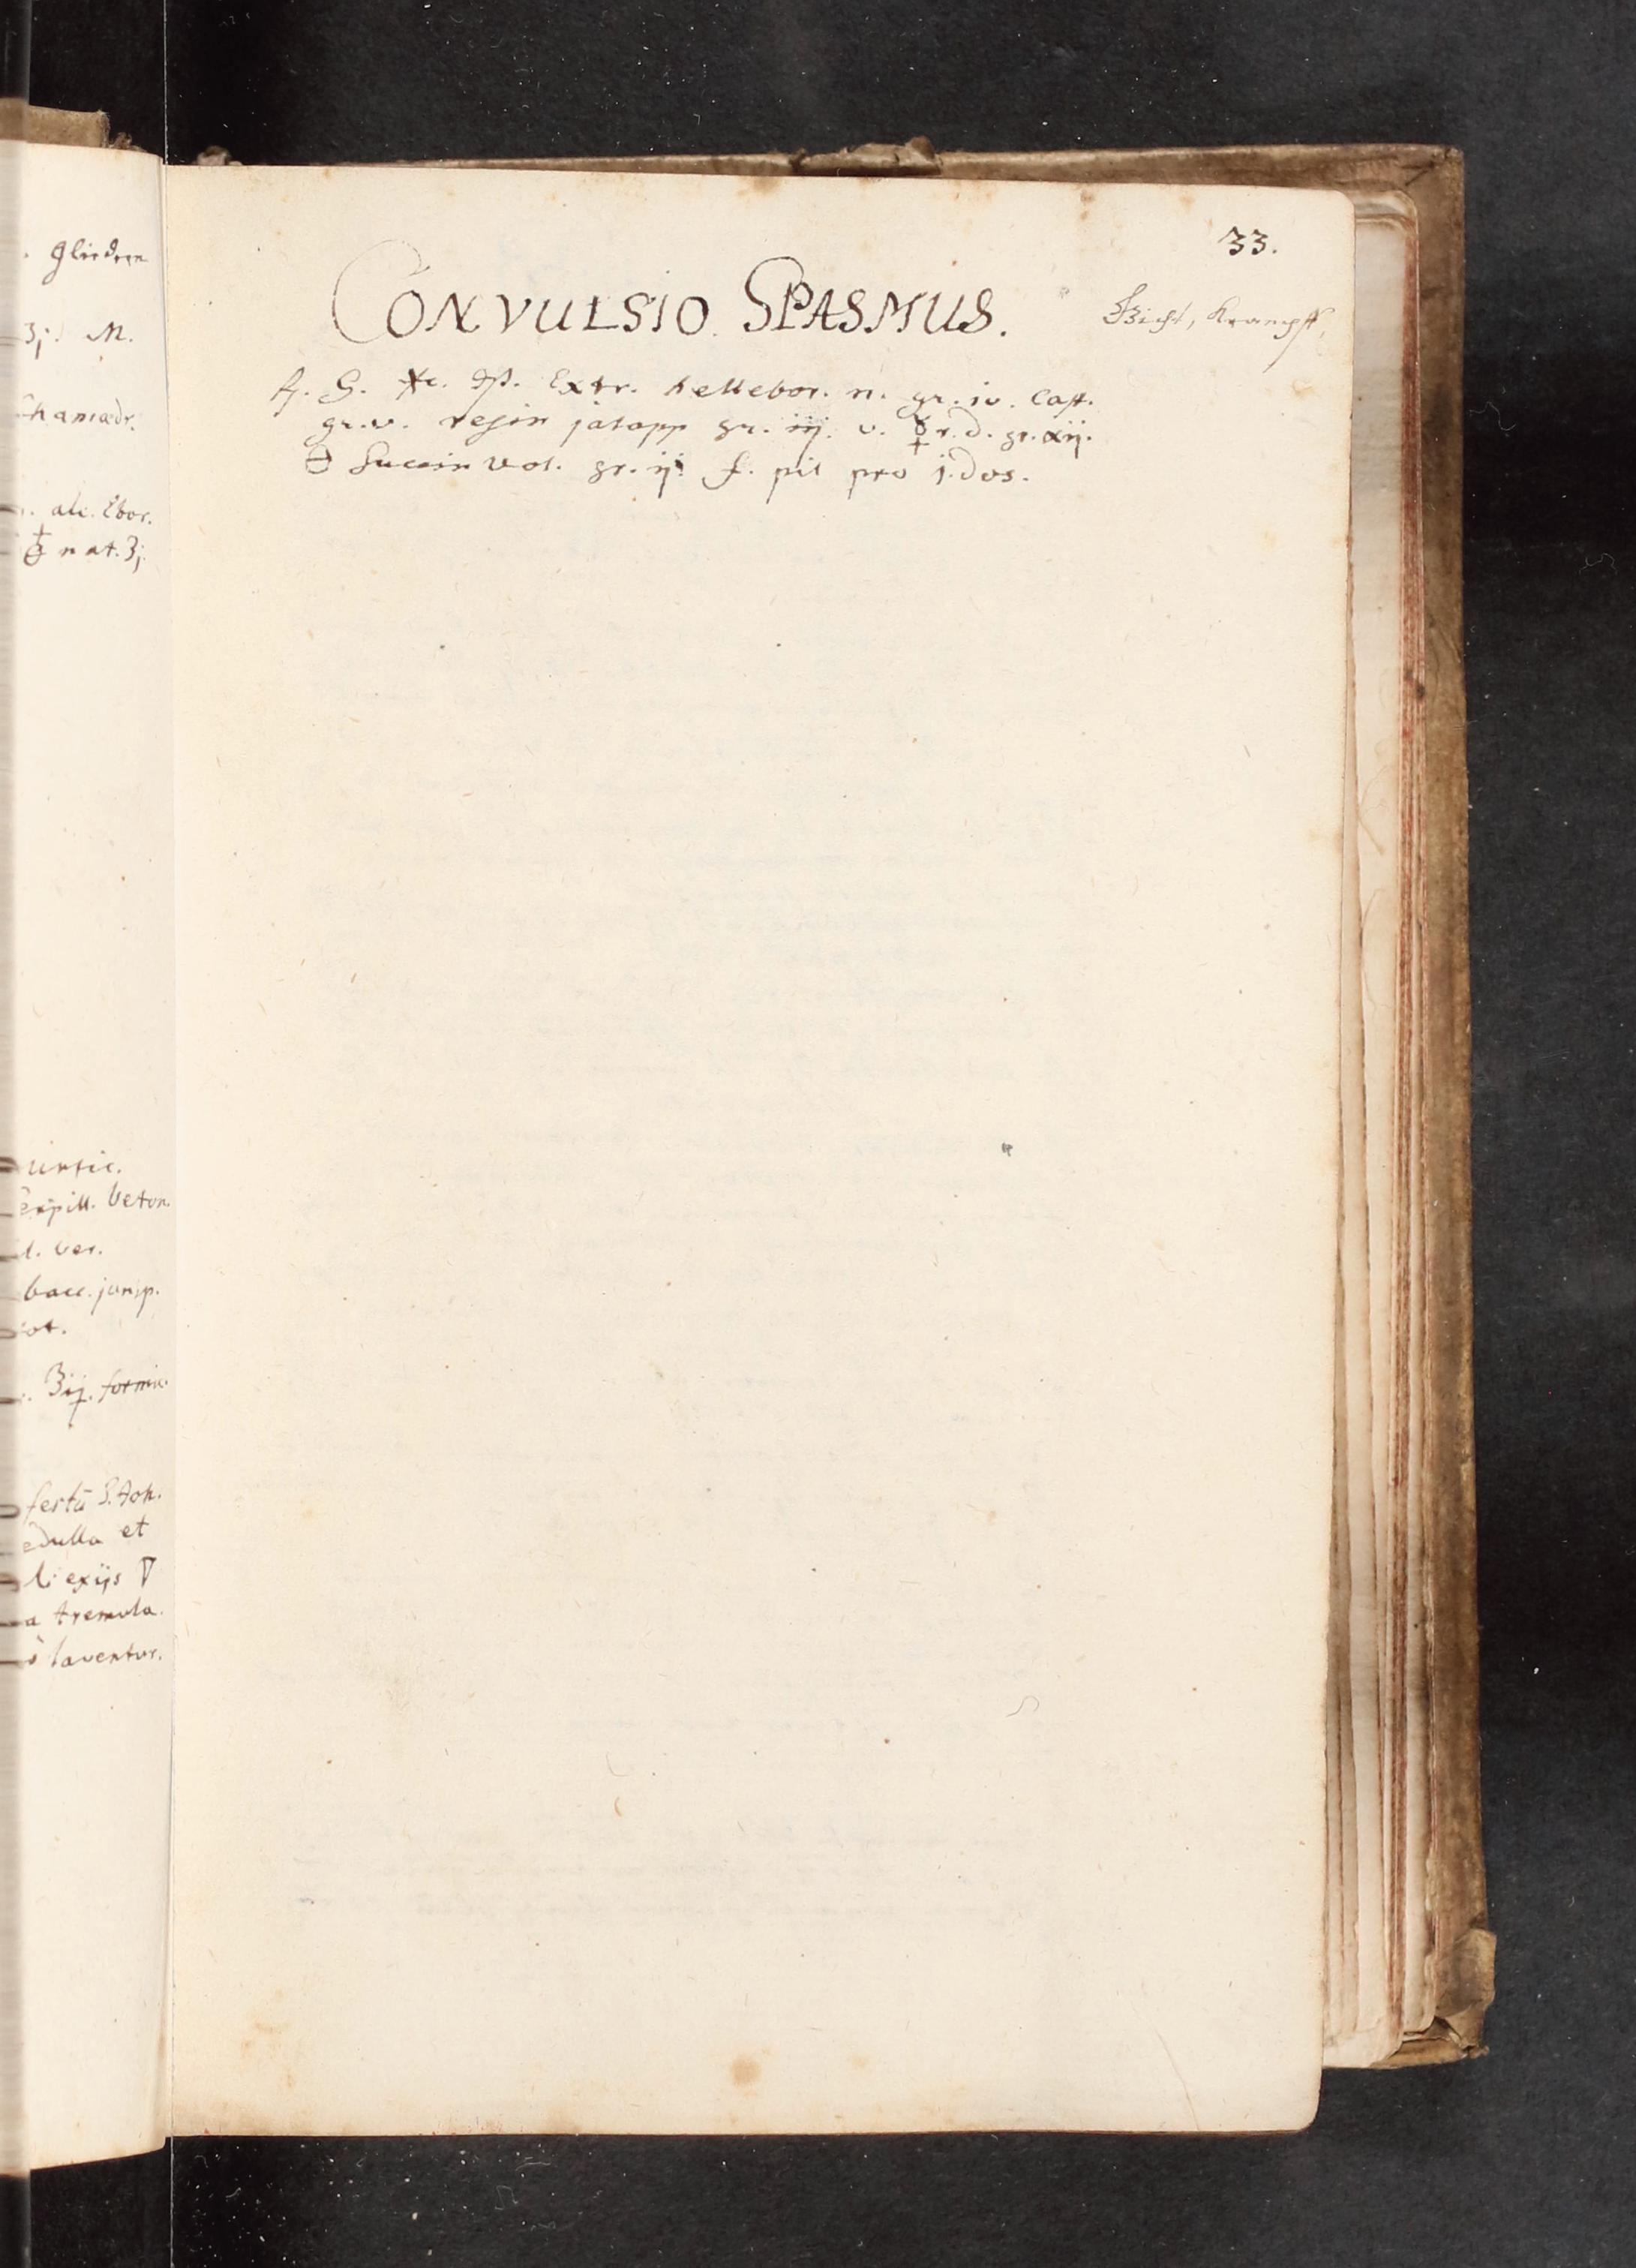 . gliedern
ʒj. M.
Chamædr.
. alc. Ebor.
nat. ʒj.
urtic.
serpill. beton.
l. ver.
bacc. junip.
ʒij. formic.
festū S. Joh.
edulla et
li exijs 🜄
a tremula.
laventur.
33.
CONVULSIO. SPASMUS.
Gicht, Krampff,
℞. G. ⚹c. ℈ß. Extr. hellebor. n. gr. iv. Cast.
gr. v. resin jalapp gr. iij. v. ☿ r. d. gr. xij.
🜔 Succin vol. gr. ij. f. pil pro j. dos.